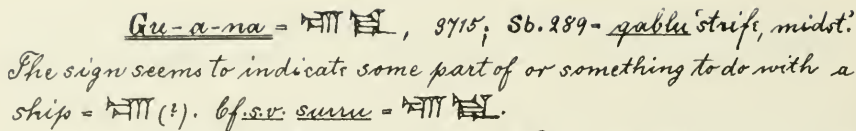 Gu-a-na = , 3715; Sb. 289 = qablu 'strife, midst'.
The sign seems to indicate some part of or something to do with a
ship = (?). Cf. s.v. surru = .